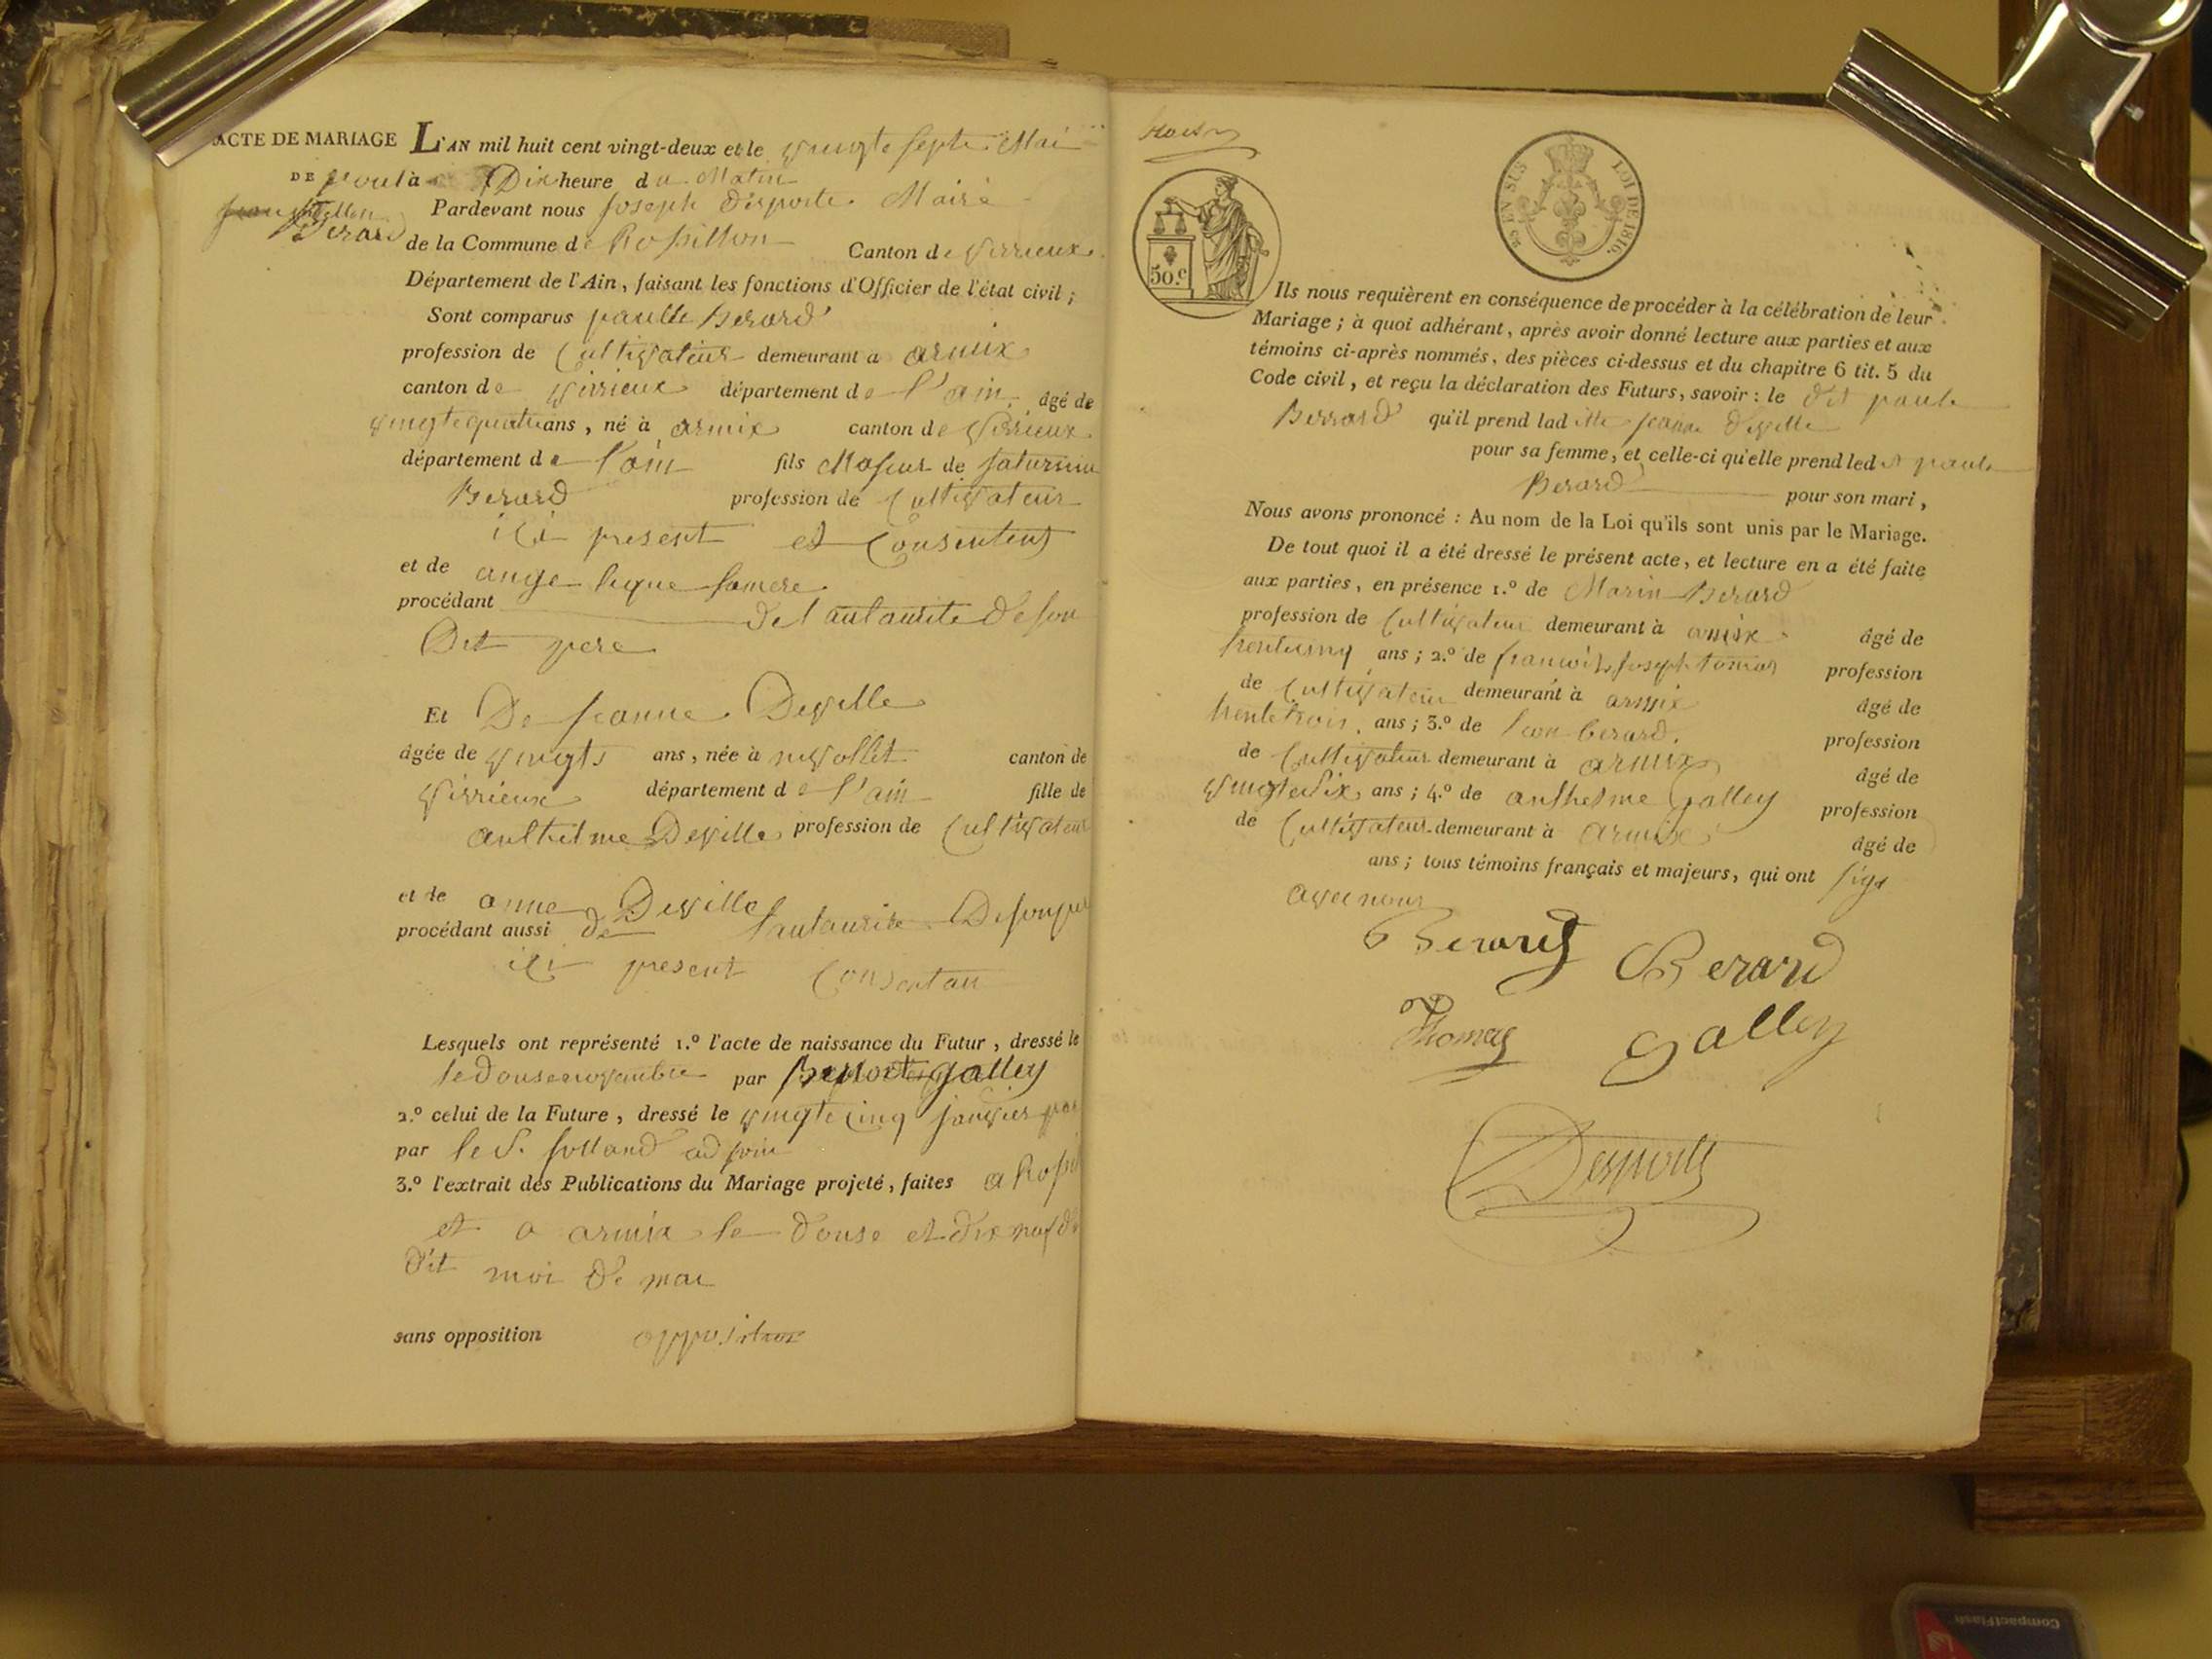 ACTE DE MARIAGE L'AN mil huit cent vingt-deux et le vingte septe Mai
DE poul à Dix heure du Matin
Berard
Pardevant nous Joseph Desporte Maire
de la Commune de Rossillon Canton de Virrieux
Département de l'Ain, faisant les fonctions d'Officier de l'état civil ;
Sont comparus paulle Berard
profession de Cultivateur demeurant a armix
canton de Virieux département de l'ain âgé de
vingtequatre ans, né à armix canton de Virieux
département de l'ain fils Majeur de saturnin
Berard profession de Cultivateur
ici present et Consentent
et de ange lique
procédant de l'autaurite de son
Dit pere
Et De Jeanne Deville
âgée de vingts ans, née à nivollet canton de
Virrieux département de l'ain fille de
anthelme Deville profession de Cultivateur
et de anne Deville
procédant aussi de l'autaurite De son per
ici present Consentan
Lesquels ont représenté 1.º l'acte de naissance du Futur, dressé le
le douse novembre par galley
2.º celui de la Future, dressé le vingte cinq janvier par
par le S. jolland adjoin
3.º l'extrait des Publications du Mariage projeté, faites a Rossi
et a armix le douse et dix nof du
dit moi de mai
sans opposition opposition
50.c
25 EN SUS LOI DE 1816.
Ils nous requièrent en conséquence de procéder à la célébration de leur
Mariage ; à quoi adhérant, après avoir donné lecture aux parties et aux
témoins ci-après nommés, des pièces ci-dessus et du chapitre 6 tit. 5 du
Code civil, et reçu la déclaration des Futurs, savoir : le dit paule
Berrard qu'il prend laditte jeanne deville
pour sa femme, et celle-ci qu'elle prend ledit paule
Berard pour son mari,
Nous avons prononcé : Au nom de la Loi qu'ils sont unis par le Mariage.
De tout quoi il a été dressé le présent acte, et lecture en a été faite
aux parties, en présence 1.º de Marin Berard
profession de Cultivateur demeurant à armix âgé de
trentecinq ans ; 2.º de francois joseph tomas profession
de Cultivateur demeurant à armix âgé de
trentetrois ans ; 3.º de leon berard profession
de Cultivateur demeurant à armix âgé de
vingtesix ans ; 4.º de anthelme galley profession
de Cultivateur demeurant à armix âgé de
ans ; tous témoins français et majeurs, qui ont sige
avec nous
Berard Berard
Thomas Galley
Desporte
CompactFlash